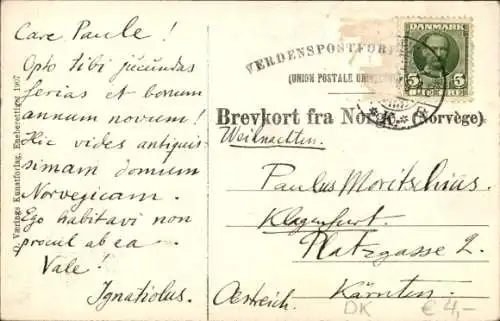 Care Paule!
Opto tibi jucundas
ferias et bonum
annum novum!
Hic vides antiquis-
simam domum
Norvegicam.
Ego habitavi non
procul ab ea
Vale!
Ignatiolus.
O. Værings Kunstforlag, Eneberettiget 1907
VERDENSPOSTFOR
(UNION POSTALE
DANMARK
5 5
Brevkort fra (Norvège)
Weihnachten.
Paulus Moritschius
Klagenfurt.
Platzgasse 2
Kärnten.
Oestreich.
DK € 4,-